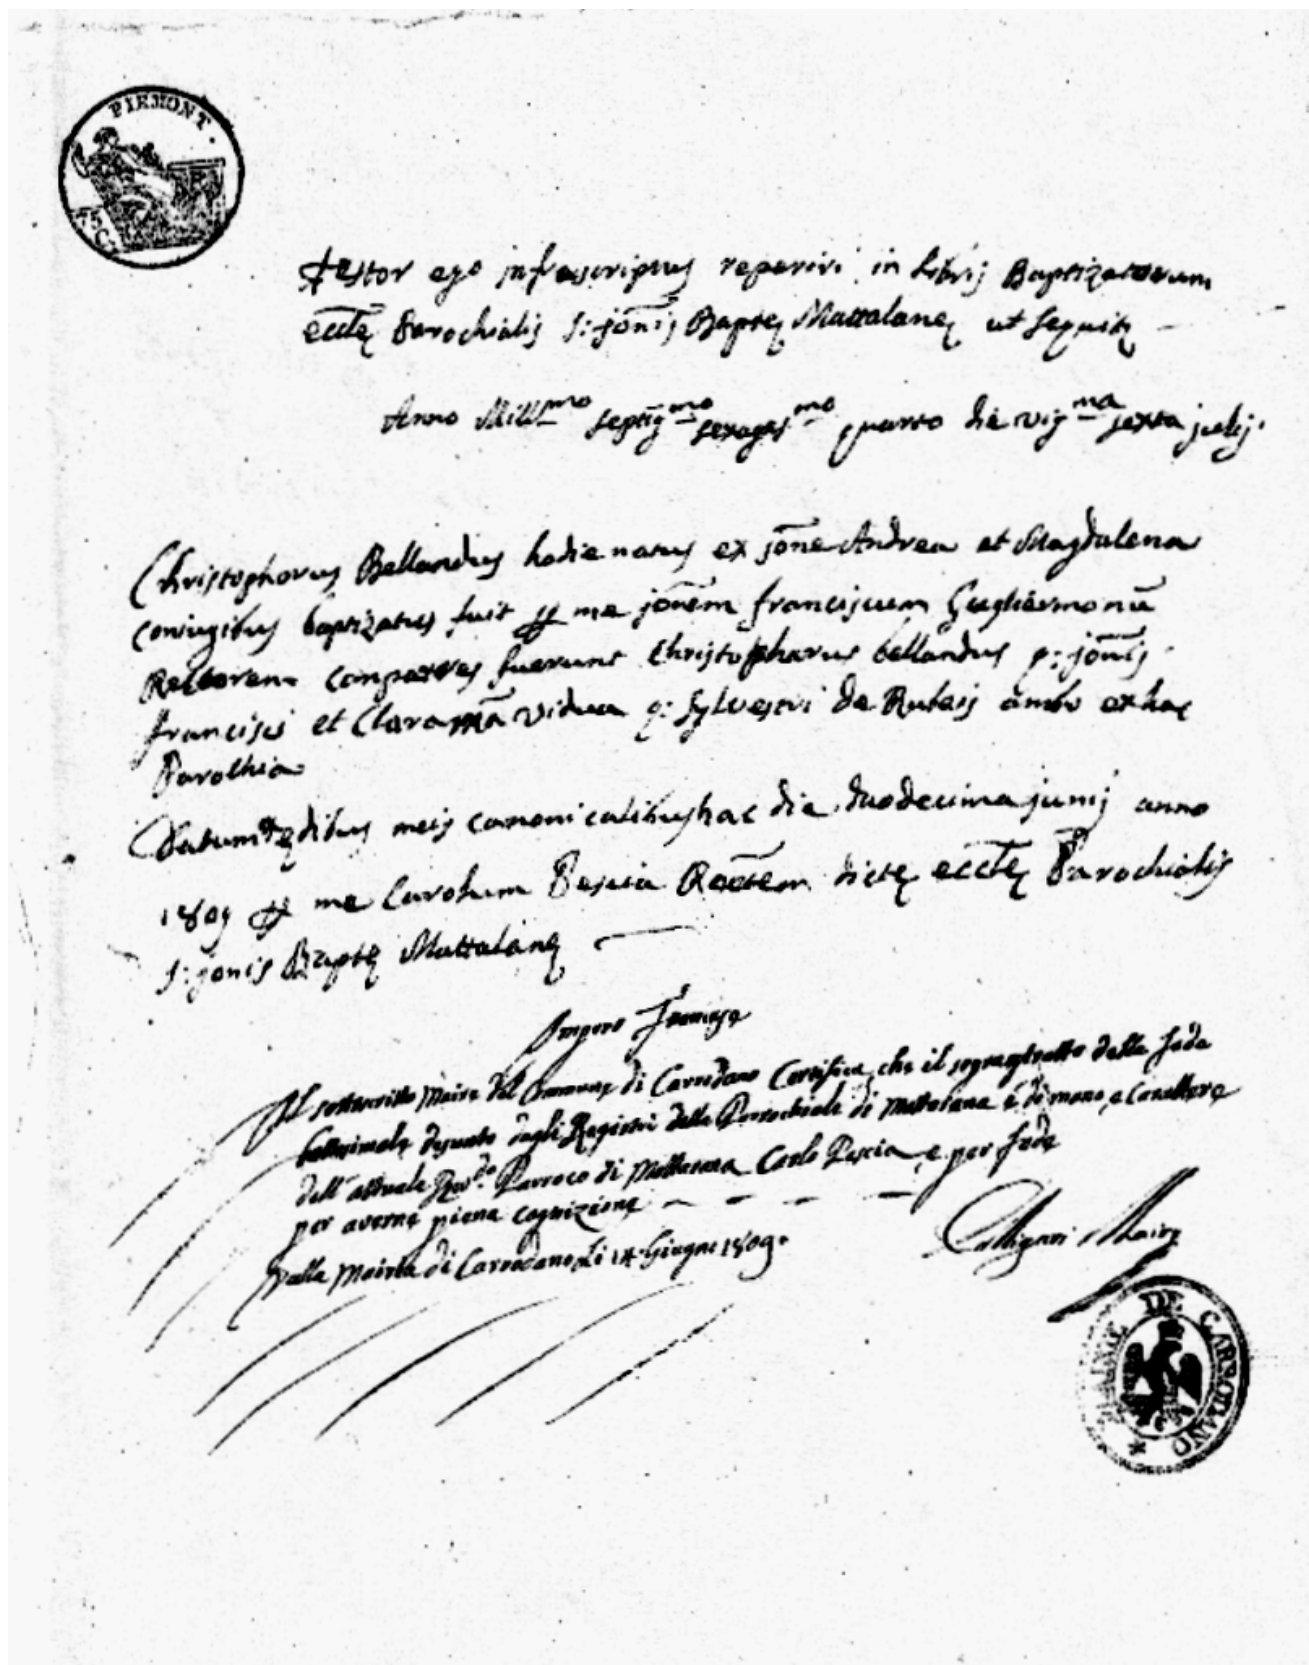 PIEMONT.
75 C
Testor ego infrascriptus reperiri in Libris Baptizatorum
eccłę Parochialis S: Jōnis Baptę Mattalanę ut sequitꝛ
Anno Millmo septigmo sexagesmo quarto die vigma sexta julij.
Christophorus Bellandus hodie natus ex jōne Andrea et Magdalena
coniugibus baptizatus fuit ꝑ me jōnem franciscum Gugliermonū
Rectorem compatres fuerunt Christophorus bellandus q: jōnis
francisci et Clara Mā vidua q: Sylvestri de Rubeis ambo ex hac
Parochia
Datum ędibus meis canonicalibus hac die duodecima junij anno
1809 ꝑ me Carolum Pescia Rectēm dictę eccłę Parochialis
S: jonis Baptę Mattalanę
Impero Francese
Il sottoscritto Maire del Comune di Carrodano Certifica, che il sopraestratto della fede
battesimale desunto dagli Registri della Parrochiale di Mattarana è di mano, e Carattere
dell'attuale Revdo. Parroco di Mattarana Carlo Pescia, e per fede
per averne piena cognizione
Dalla Mairia di Carrodano Li 14 Giugno 1809.
Maire
MAIRIE DE CARRODANO